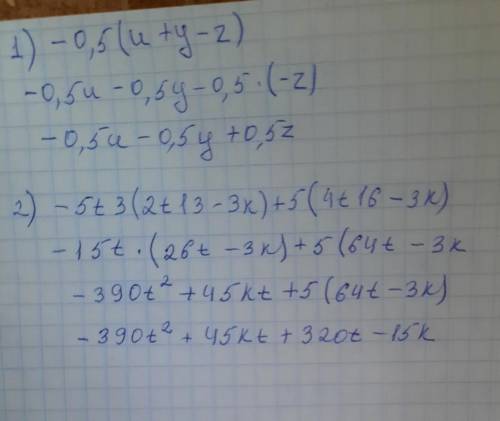 1) -0,5(u+y-z)
-0,5u-0,5y-0,5·(-z)
-0,5u-0,5y+0,5z
2) -5t3(2t13-3k)+5(4t16-3k)
-15t·(26t-3k)+5(64t-3k
-390t²+45kt+5(64t-3k)
-390t²+45kt+320t-15k